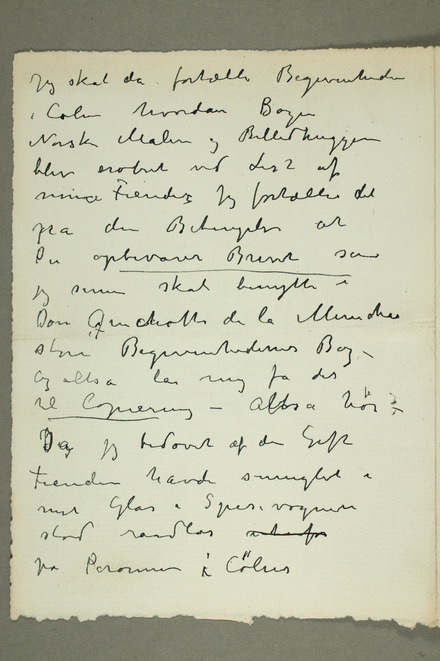 Jeg skal da fortælle Begivenheden
i Cøln hvordan Bogen
Norske Malere og Billedhuggere
blev erobret ved List af
mine Fiender Jeg fortæller det
paa den Betingelse at
Du opbevarer Brevet som
jeg senere skal benytte i
Don Quichotte de la Manchas
store Begivenhedernes Bog –
og altsa lar mig fa det
til Copiering – Altsa hør
Da jeg bedøvet af den Gift
Fienden havde smuglet i
mit Glas i Spisevognen
stod raadløs
pa Peronnen i Cölns